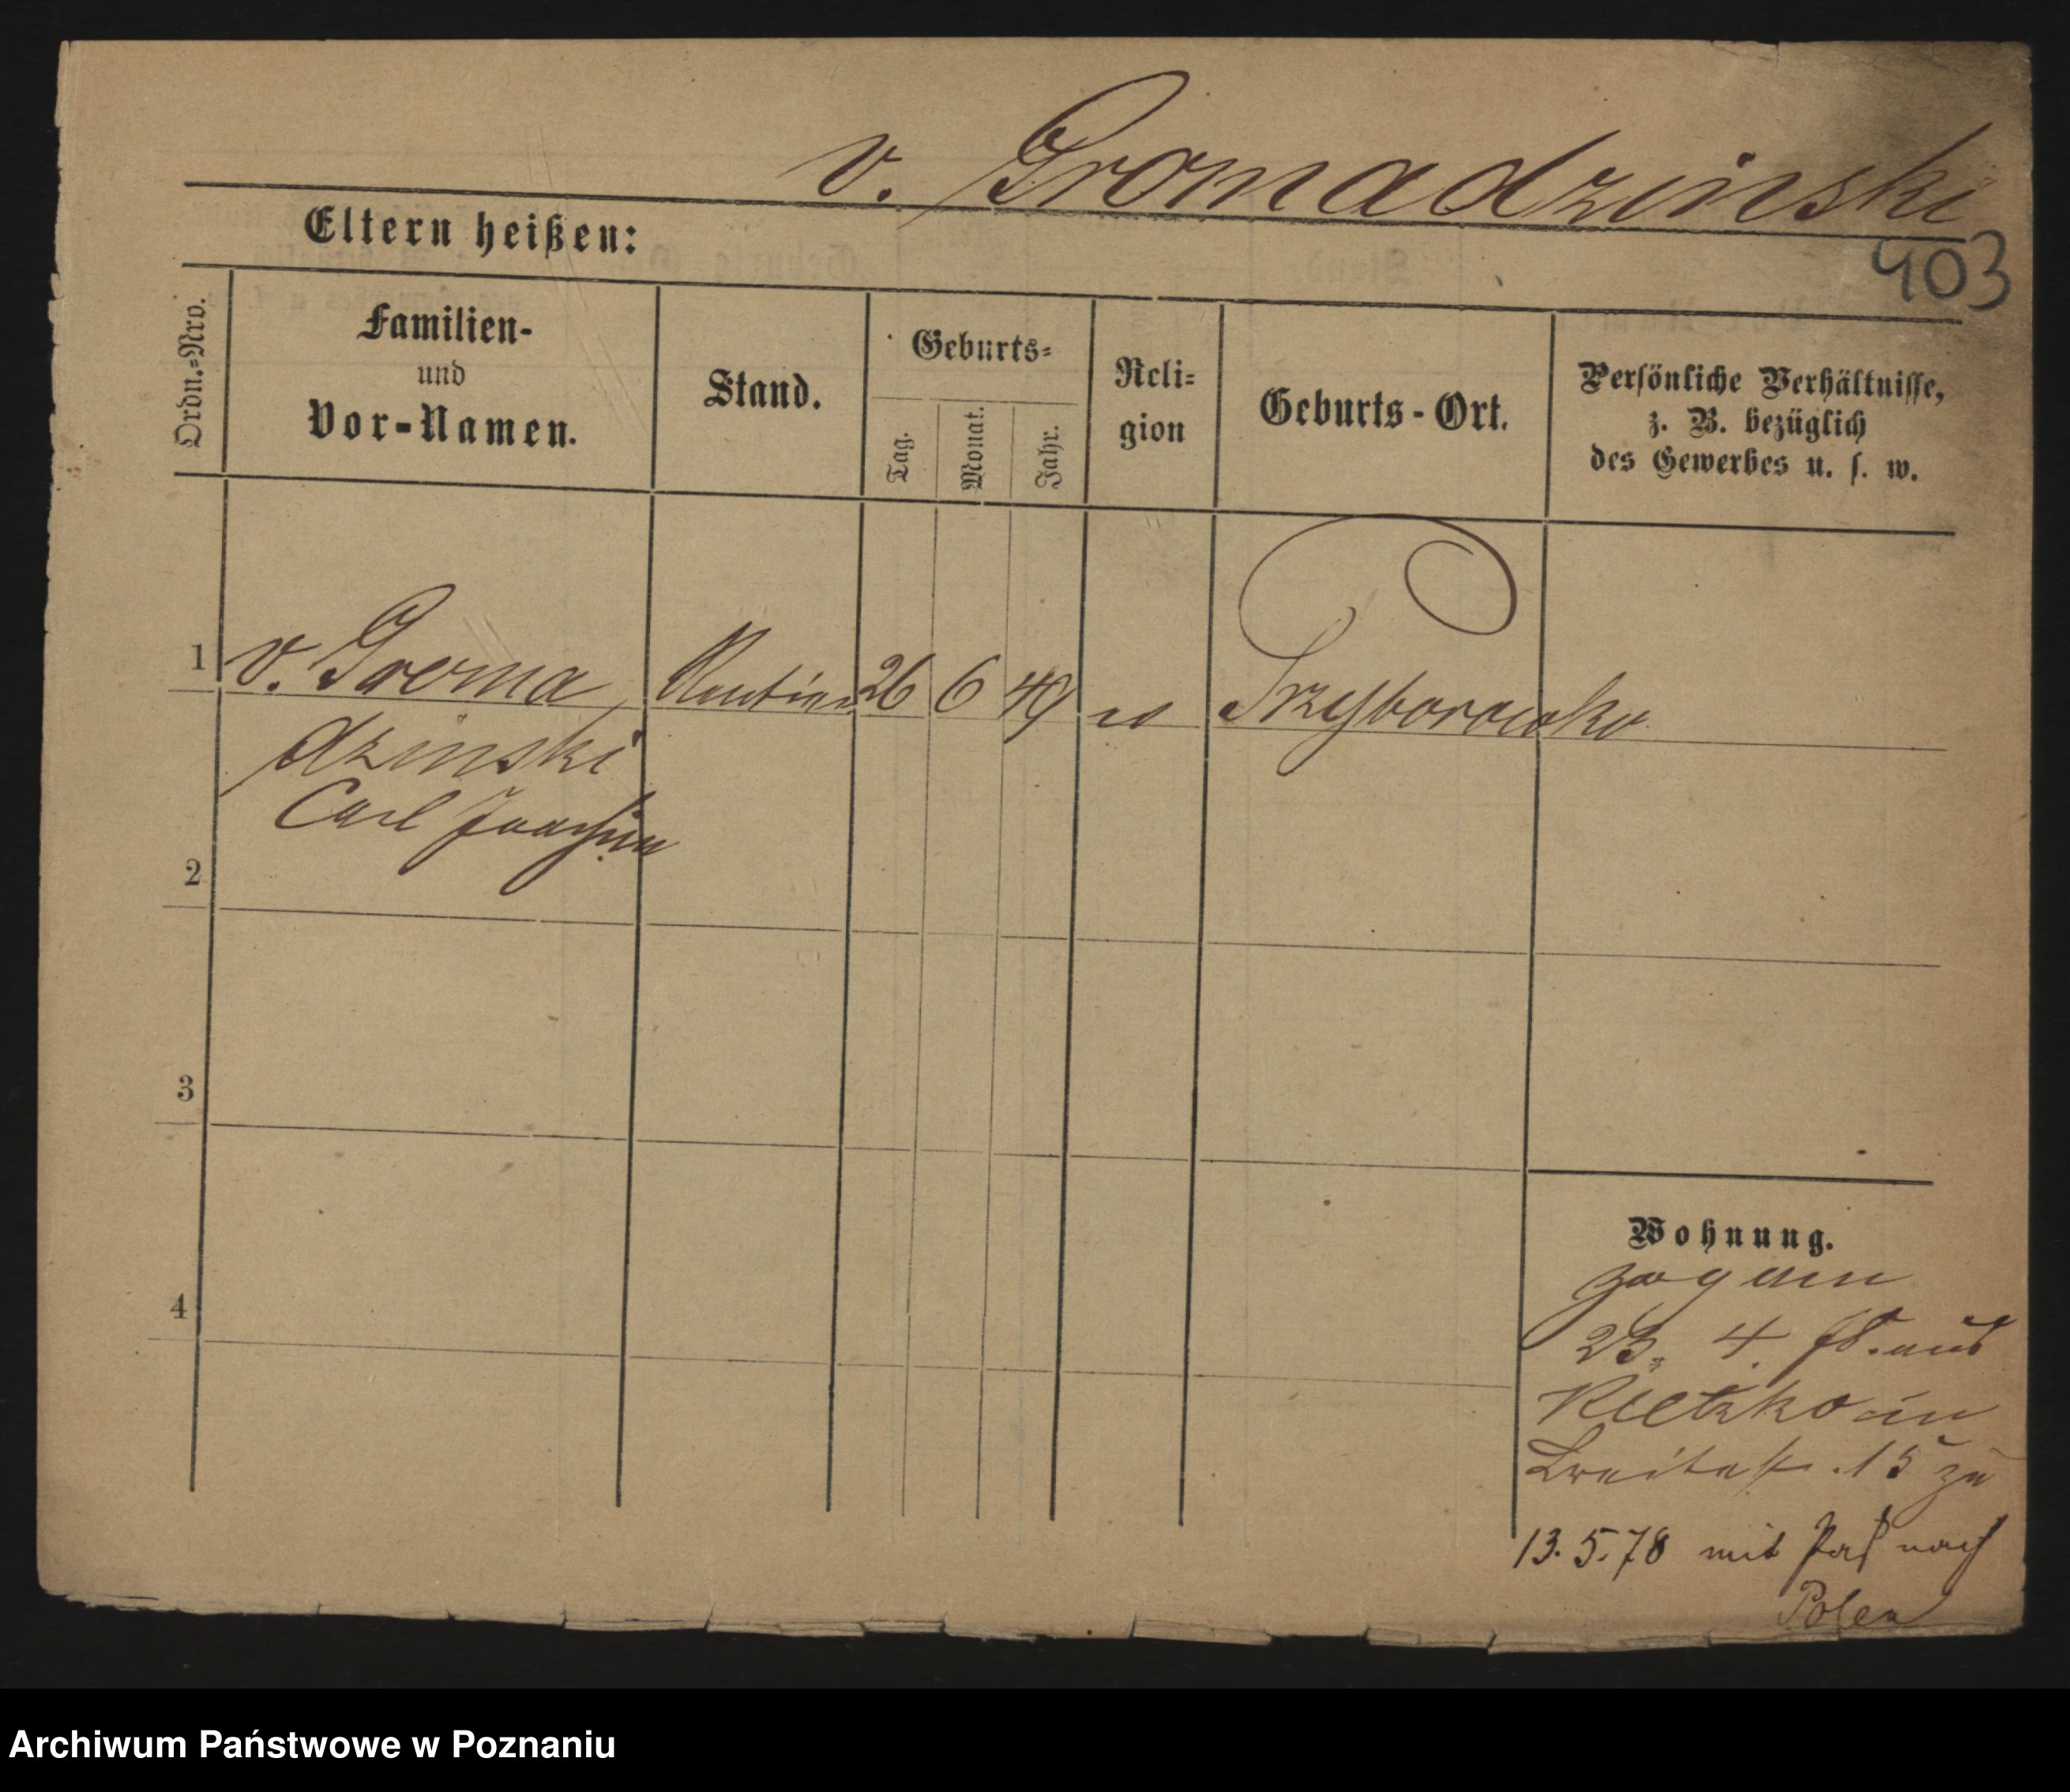 v. Gromadzinski
Eltern heißen:
403
Ordn.-Nro.
Familien-
und
Vor-Namen.
Stand.
Geburts-
Tag.
Monat.
Jahr.
Reli-
gion
Geburts-Ort.
Persönliche Verhältnisse,
z. B. bezüglich
des Gewerbes u. s. w.
1
v. Groma
dzinski
Carl Joachim
Rentier
26
6
49
Przyborowko
2
3
4
Wohnung.
zogen
23. 4. 78. aus
Kletzko in
Breitestr. 15 zu
13. 5. 78 mit Paß nach
Polen
Archiwum Państwowe w Poznaniu